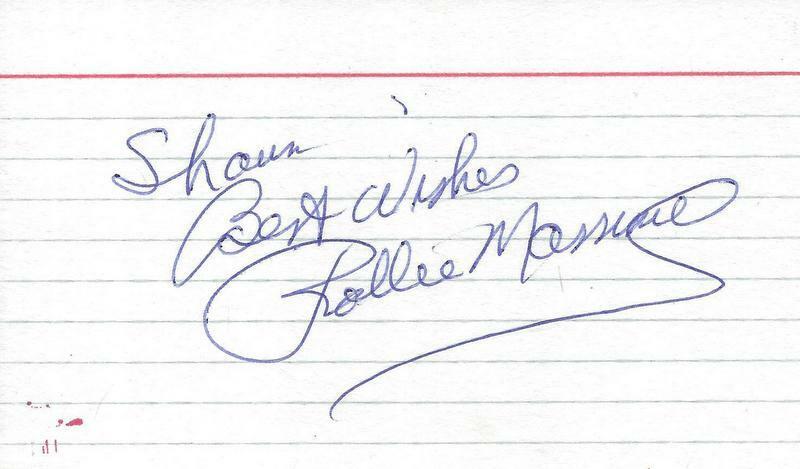 Shaun
Best Wishes
Rollie Massimino